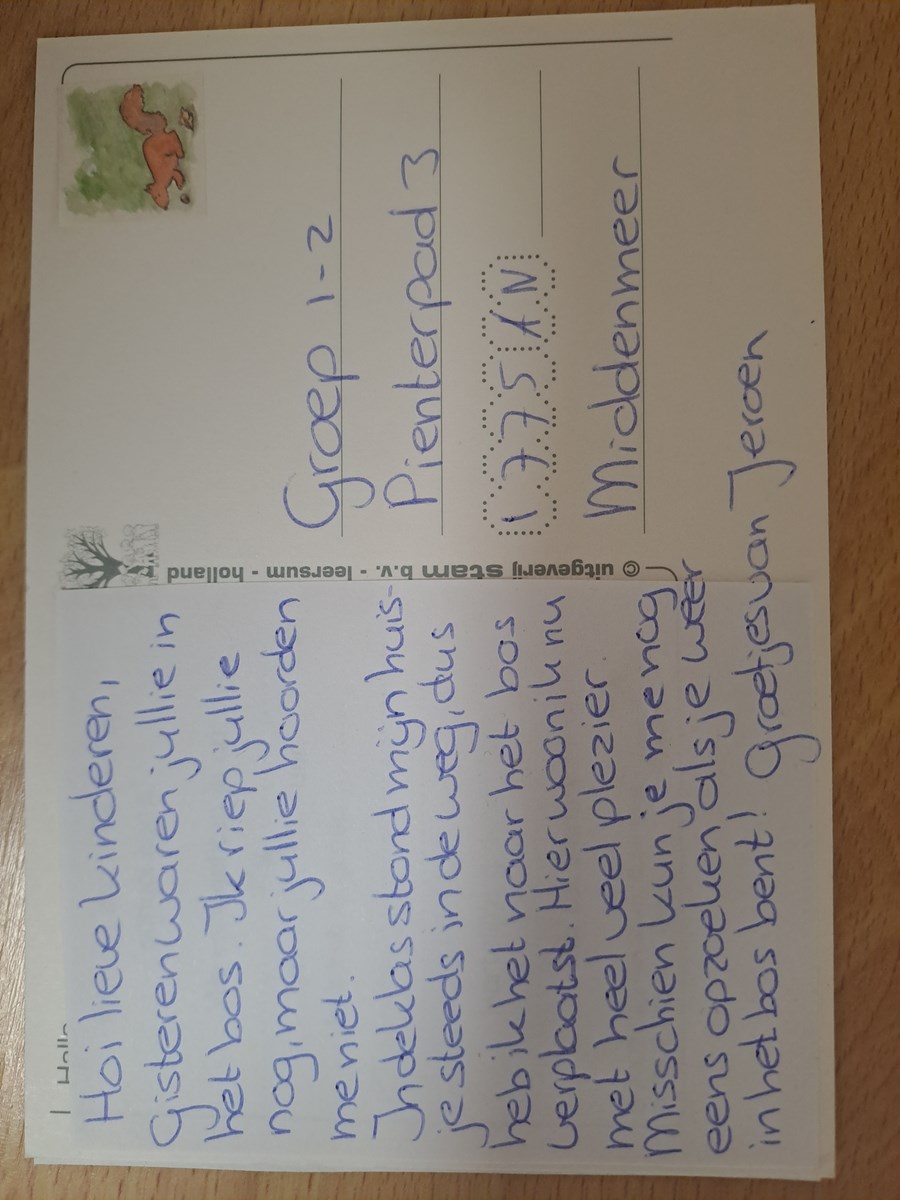 Hoi lieve kinderen,
Gisteren waren jullie in
het bos. Ik riep jullie
nog, maar jullie hoorden
me niet.
In de klas stond mijn huis-
je steeds in de weg, dus
heb ik het naar het bos
verplaatst. Hier woon ik nu
met heel veel plezier.
Misschien kun je me nog
eens opzoeken als je weer
in het bos bent! Groetjes van Jeroen
© uitgeverij stam b.v. - leersum - holland
Groep 1-2
Pienterpad 3
1775
Middenmeer